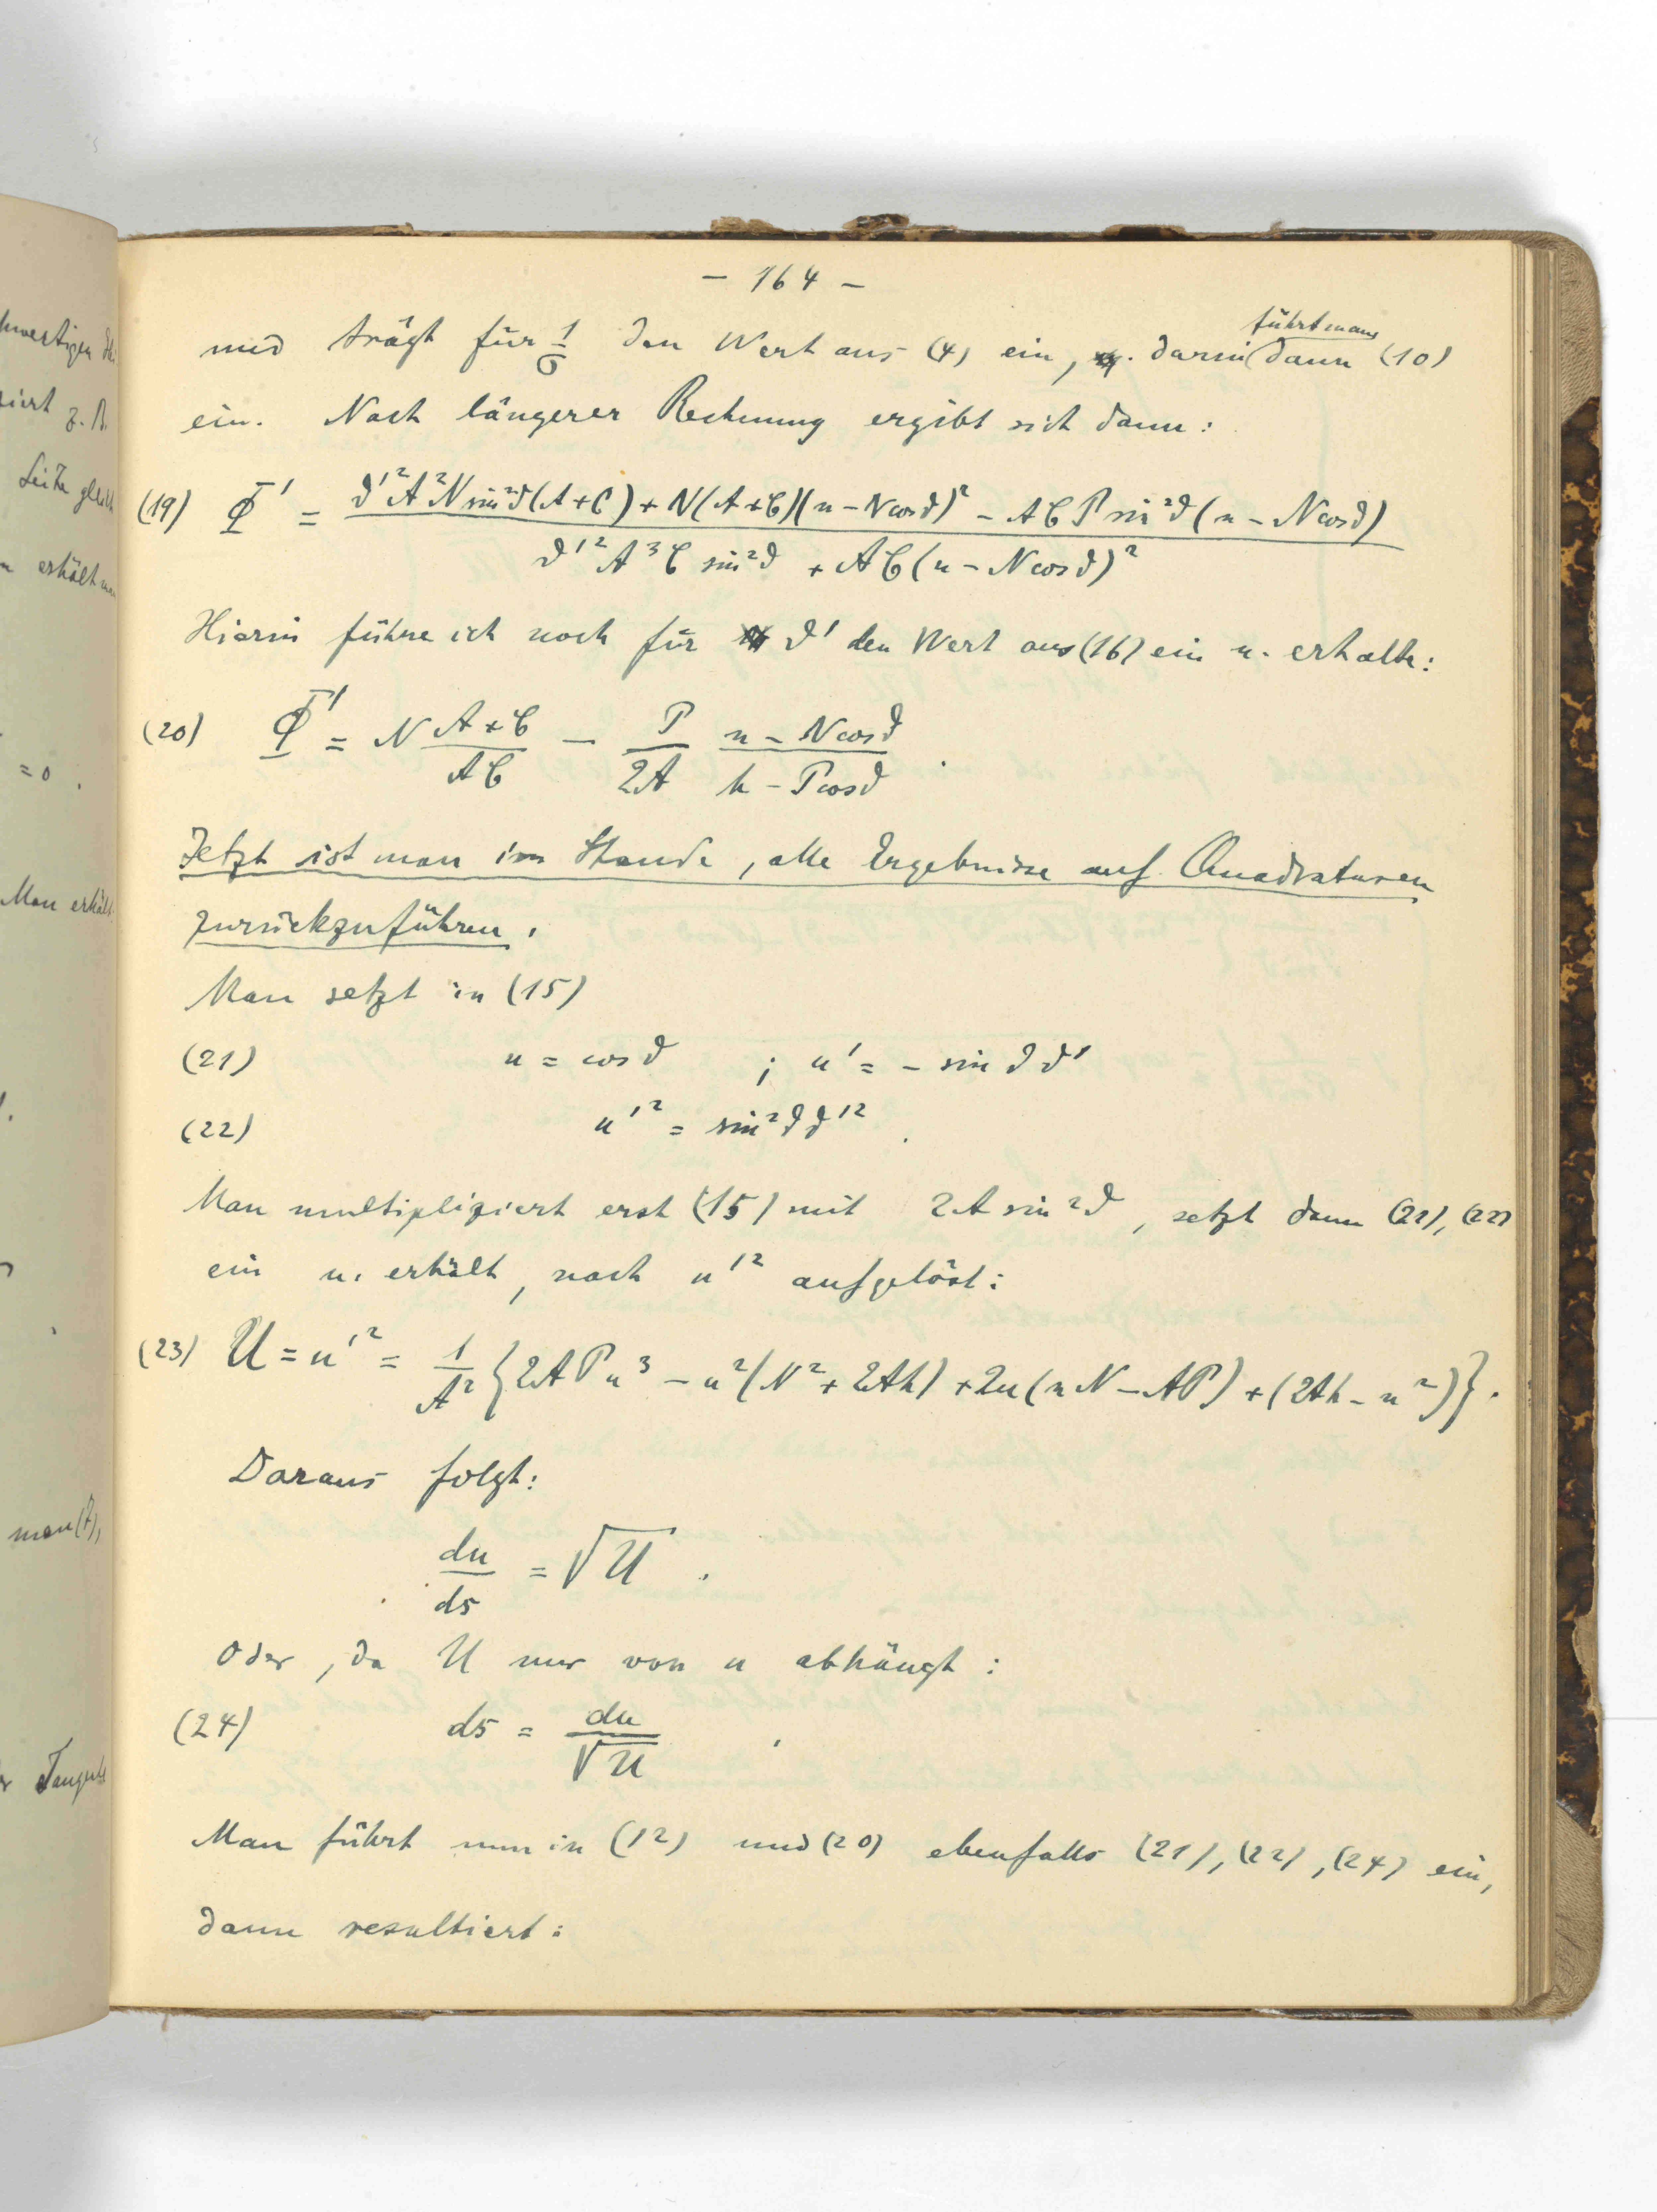 - 164 -
und trägt für 1/σ den Wert aus (4) ein, u. darin führt man dann (10)
ein. Nach längerer Rechnung ergibt sich dann:
(19) Φ' = (ϑ'²A²N sin²ϑ(A+C) + N(A+C)(n - N cosϑ)² - AC P sin²ϑ(n - N cosϑ)) / (ϑ'²A³C sin²ϑ + AC(n - N cosϑ)²)
Hierin führe ich noch für ϑ' den Wert aus (16) ein u. erhalte:
(20) Φ' = N (A+C)/(AC) - P/(2A) (n - N cosϑ)/(h - P cosϑ) .
Jetzt ist man im Stande, alle Ergebnisse auf Quadraturen
zurückzuführen.
Man setzt in (15)
(21) u = cosϑ ; u' = - sin ϑ ϑ'
(22) u'² = sin²ϑ ϑ'² .
Man multipliziert erst (15) mit 2A sin²ϑ, setzt dann (21), (22)
ein u. erhält, nach u'² aufgelöst:
(23) U = u'² = 1/A² {2AP u³ - u²(N² + 2Ah) + 2u(nN - AP) + (2Ah - n²)}.
Daraus folgt:
du/ds = √U .
Oder, da U nur von u abhängt:
(24) ds = du/√U .
Man führt nun in (12) und (20) ebenfalls (21), (22), (24) ein,
dann resultiert:
hwertigen
siert z. B.
Seite gleich
erhält man
= 0 .
Man erhält
man (7),